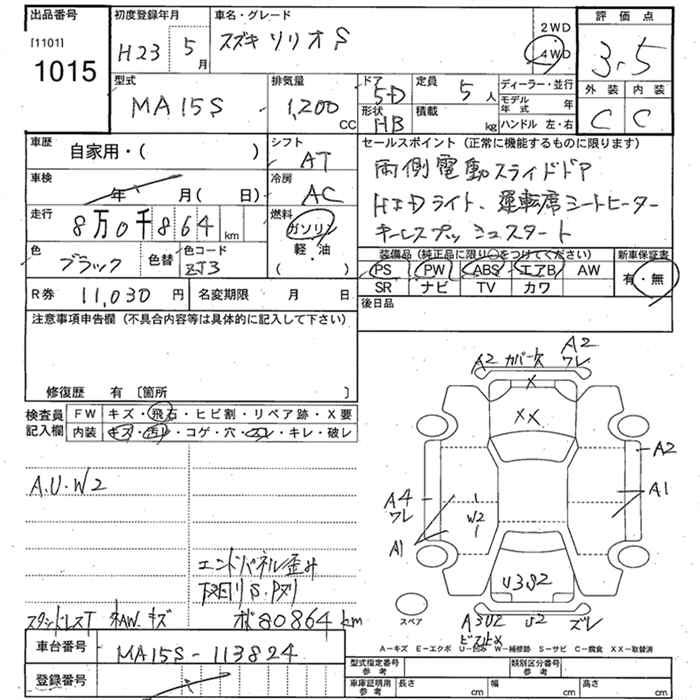 出品番号 初度登録年月 車名・グレード 評価点
[1101]
1015
H23 5月 スズキ ソリオ S 2WD 4WD 3.5
型式 排気量 ドア 5D 定員 5人 ディーラー・並行 外装 内装
MA15S 1,200 CC 形状 HB 積載 kg モデル年式 年 C C
ハンドル 左・右
車歴 自家用・( ) シフト AT セールスポイント (正常に機能するものに限ります)
車検 年 月(日) 冷房 AC 両側電動スライドドア
走行 8万0千864 km 燃料 ガソリン HIDライト、運転席シートヒーター
軽・油 キーレスプッシュスタート
色 ブラック 色替 色コード ZJ3 ( ) 装備品(純正品に限り○をつけてください) 新車保証書
PS PW ABS エアB AW 有・無
R券 11,030円 名変期限 月 日 SR ナビ TV カワ
後日品
注意事項申告欄(不具合内容等は具体的に記入して下さい)
修復歴 有 〔箇所 〕
検査員 FW キズ・飛石・ヒビ割・リペア跡・X要
記入欄 内装 キズ・汚れ・コゲ・穴・スレ・キレ・破レ
A2 カバー欠 A2 ワレ
X
XX
A2
A.U.W2
A4 ワレ W2 A1
A1
エンドパネル歪み
下回りS.Pスリ U3S2
スタッドレスT 社AW.キズ ボ80864km
スペア A3U2 U2 ズレ
ビス止メ
車台番号 MA15S-113824 A-キズ E-エクボ U-凹み W-補修跡 S-サビ C-腐食 XX-取替済
登録番号 型式指定番号 参考 類別区分番号 参考
車庫証明用 参考 長さ cm 幅 cm 高さ cm